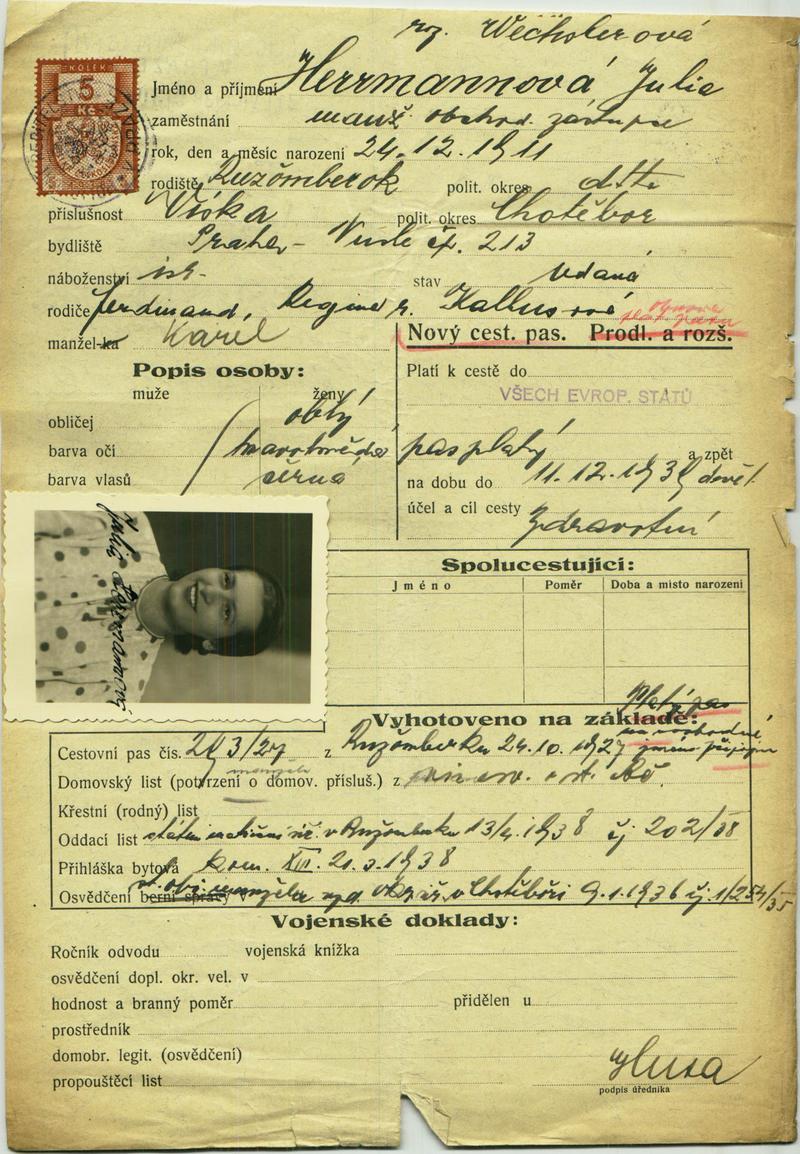 roz. Wechslerová
KOLEK
5
Kč
Jméno a příjmení Herrmannová Julie
zaměstnání manž. obchod. zástupce
rok, den a měsíc narození 24.12.1911
rodiště Ružomberok polit. okres dtto
příslušnost Víska polit. okres Chotěboř
bydliště Praha - Nusle čp. 213
náboženství isr. stav vdaná
rodiče Ferdinand, Regina r. Kallusová
manžel-ka Karel
Nový cest. pas. Prodl. a rozš.
Popis osoby:
muže ženy
obličej oblý
barva očí tmavohnědá
barva vlasů černá
Platí k cestě do
VŠECH EVROP. STÁTŮ
pas platný a zpět
na dobu do 11.12.1939
účel a cíl cesty Zdravotní
Julie Herrmannová
Spolucestující:
Jméno Poměr Doba a místo narození
Vyhotoveno na základě:
Cestovní pas čís. z Ružomberku 24.10.1927
Domovský list (potvrzení o domov. přísluš.) z
manžela
Křestní (rodný) list
Oddací list v Ružomberku 13/4.1938 čj 202/38
Přihláška bytová kom. XIII. 21.3.1938
Osvědčení berní správy v
st. obč. manžela v Chotěboři 9.1.1936 čj.
Vojenské doklady:
Ročník odvodu vojenská knížka
osvědčení dopl. okr. vel. v
hodnost a branný poměr přidělen u
prostředník
domobr. legit. (osvědčení)
propouštěcí list
Husa
podpis úředníka